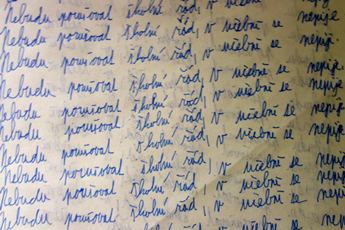 Nebudu porušovat školní řád, v učebně se
Nebudu porušovat školní řád, v učebně se nepije.
Nebudu porušovat školní řád, v učebně se nepije.
Nebudu porušovat školní řád, v učebně se nepije.
Nebudu porušovat školní řád, v učebně se nepije.
Nebudu porušovat školní řád, v učebně se nepije.
Nebudu porušovat školní řád, v učebně se nepije.
Nebudu porušovat školní řád, v učebně se nepije.
Nebudu porušovat školní řád, v učebně se nepije.
Nebudu porušovat školní řád, v učebně se nepije.